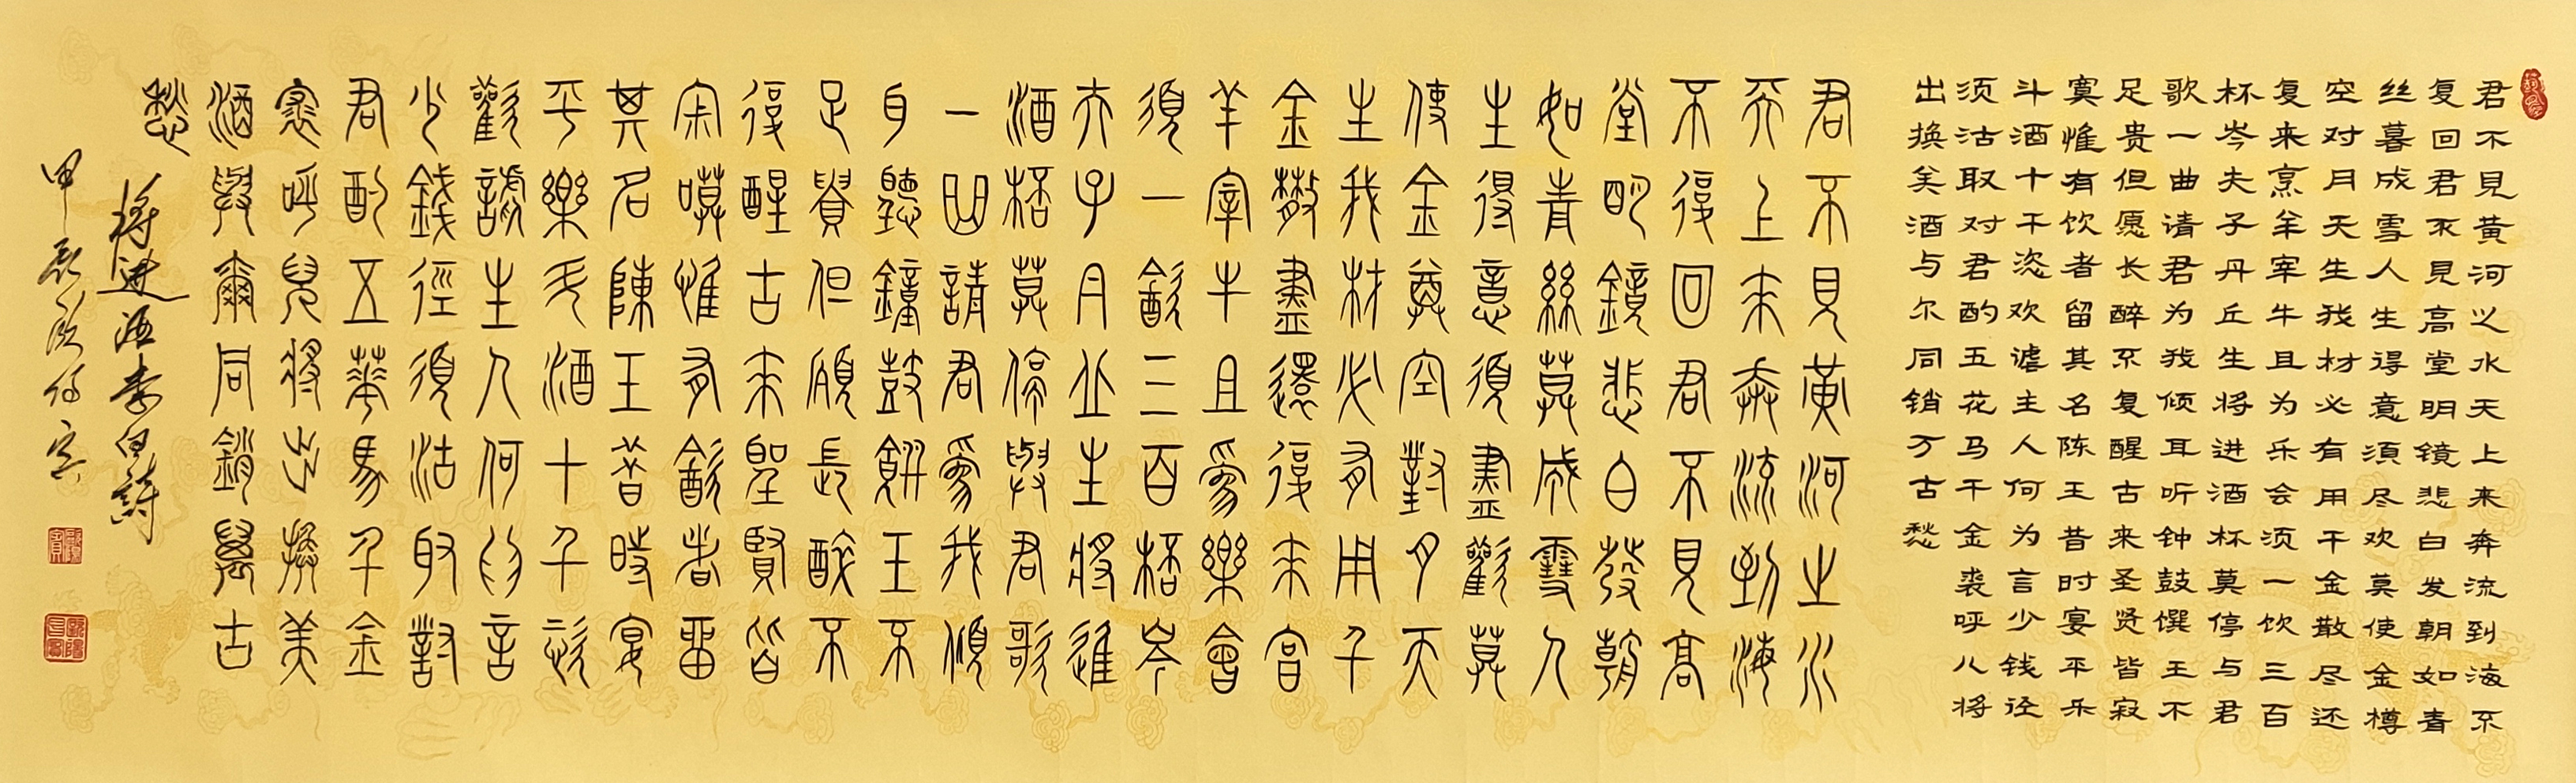 君不見黄河之水天上来奔流到海不
复回君不見高堂明镜悲白发朝如青
丝暮成雪人生得意須尽欢莫使金樽
空对月天生我材必有用千金散尽还
复来烹羊宰牛且为乐会须一饮三百
杯岑夫子丹丘生将进酒杯莫停与君
歌一曲请君为我倾耳听钟鼓馔玉不
足贵但愿长醉不复醒古来圣贤皆寂
寞惟有饮者留其名陈王昔时宴平乐
斗酒十千恣欢谑主人何为言少钱径
须沽取对君酌五花马千金裘呼儿将
出换美酒与尔同销万古愁
君不見黄河之水
天上來奔流到海
不復回君不見高
堂明鏡悲白發朝
如青絲莫成雪人
生得意須盡歡莫
使金尊空對月天
生我材必有用千
金散盡還復來亯
羊宰牛且爲樂會
須一飲三百桮岑
夫子丹丘生將進
酒桮莫停與君歌
一曲請君爲我傾
耳聽鐘鼓饌玉不
足貴但願長醉不
復醒古來聖賢皆
寂嗼惟有飲者留
其名陳王昔時宴
平樂斗酒十千恣
歡謔主人何為言
少錢徑須沽取對
君酌五華馬千金
裘呼兒將出換美
酒與爾同銷萬古
愁
將进酒李白詩
甲辰